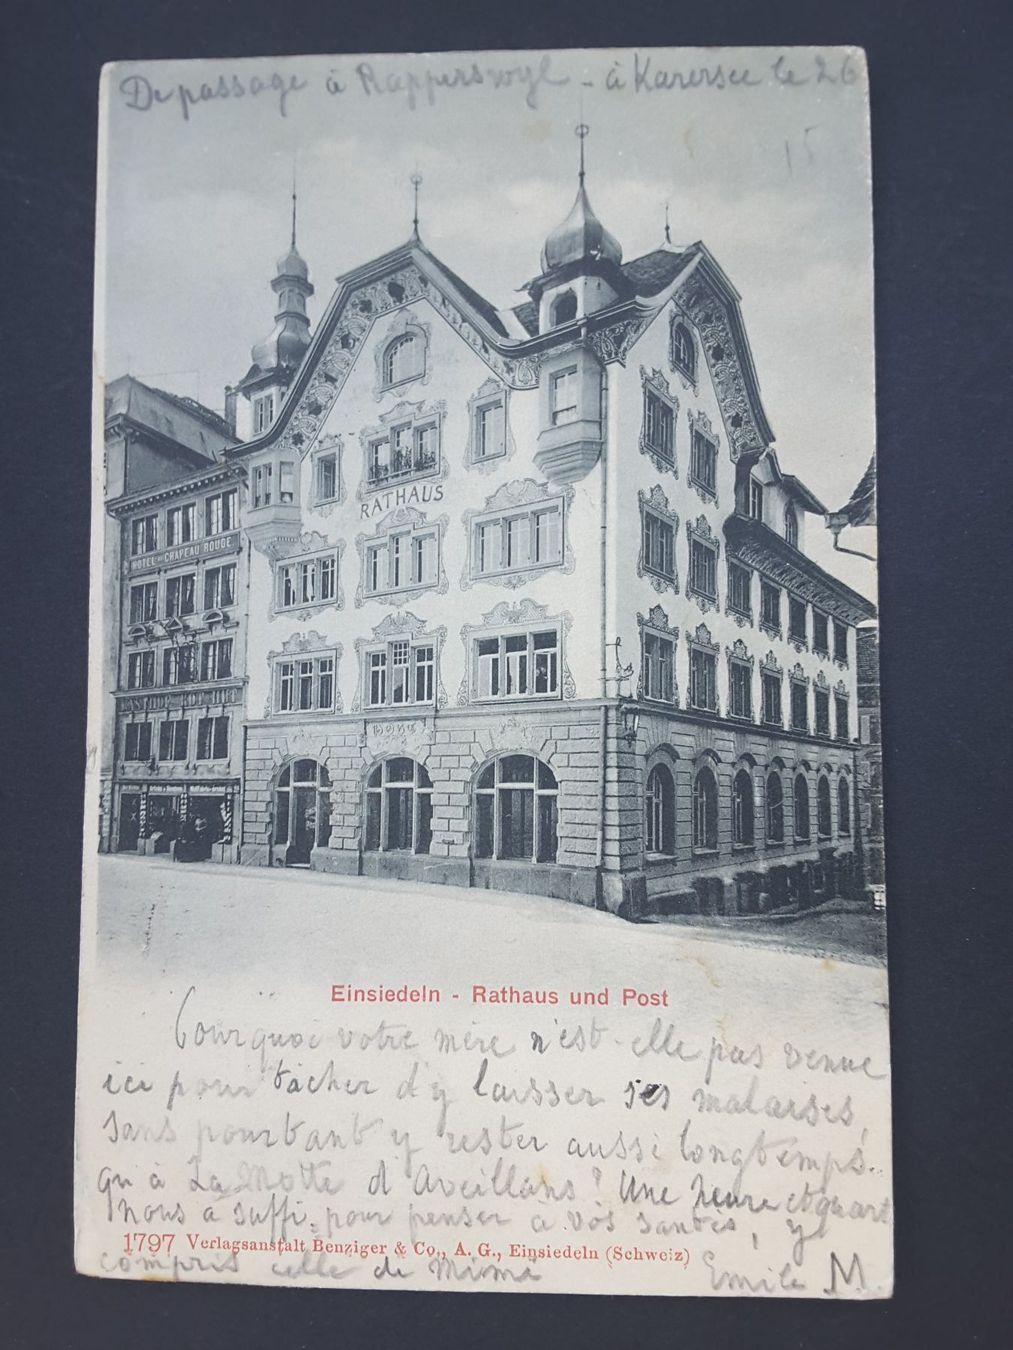 De passage à Rapperswyl - à Karersee le 26
15
RATHAUS
HOTEL DU CHAPEAU ROUGE
GASTHOF ZUM ROT HUT
POST
Einsiedeln - Rathaus und Post
Pourquoi votre mère n'est-elle pas venue
ici pour tâcher d'y laisser ses malaises,
sans pourtant y rester aussi longtemps..
qu'à La Motte d'Aveillans! Une heure et quart
nous a suffi, pour penser à vos santés, y
1797 Verlagsanstalt Benziger & Co., A. G., Einsiedeln (Schweiz)
compris celle de Mimi Emile M.